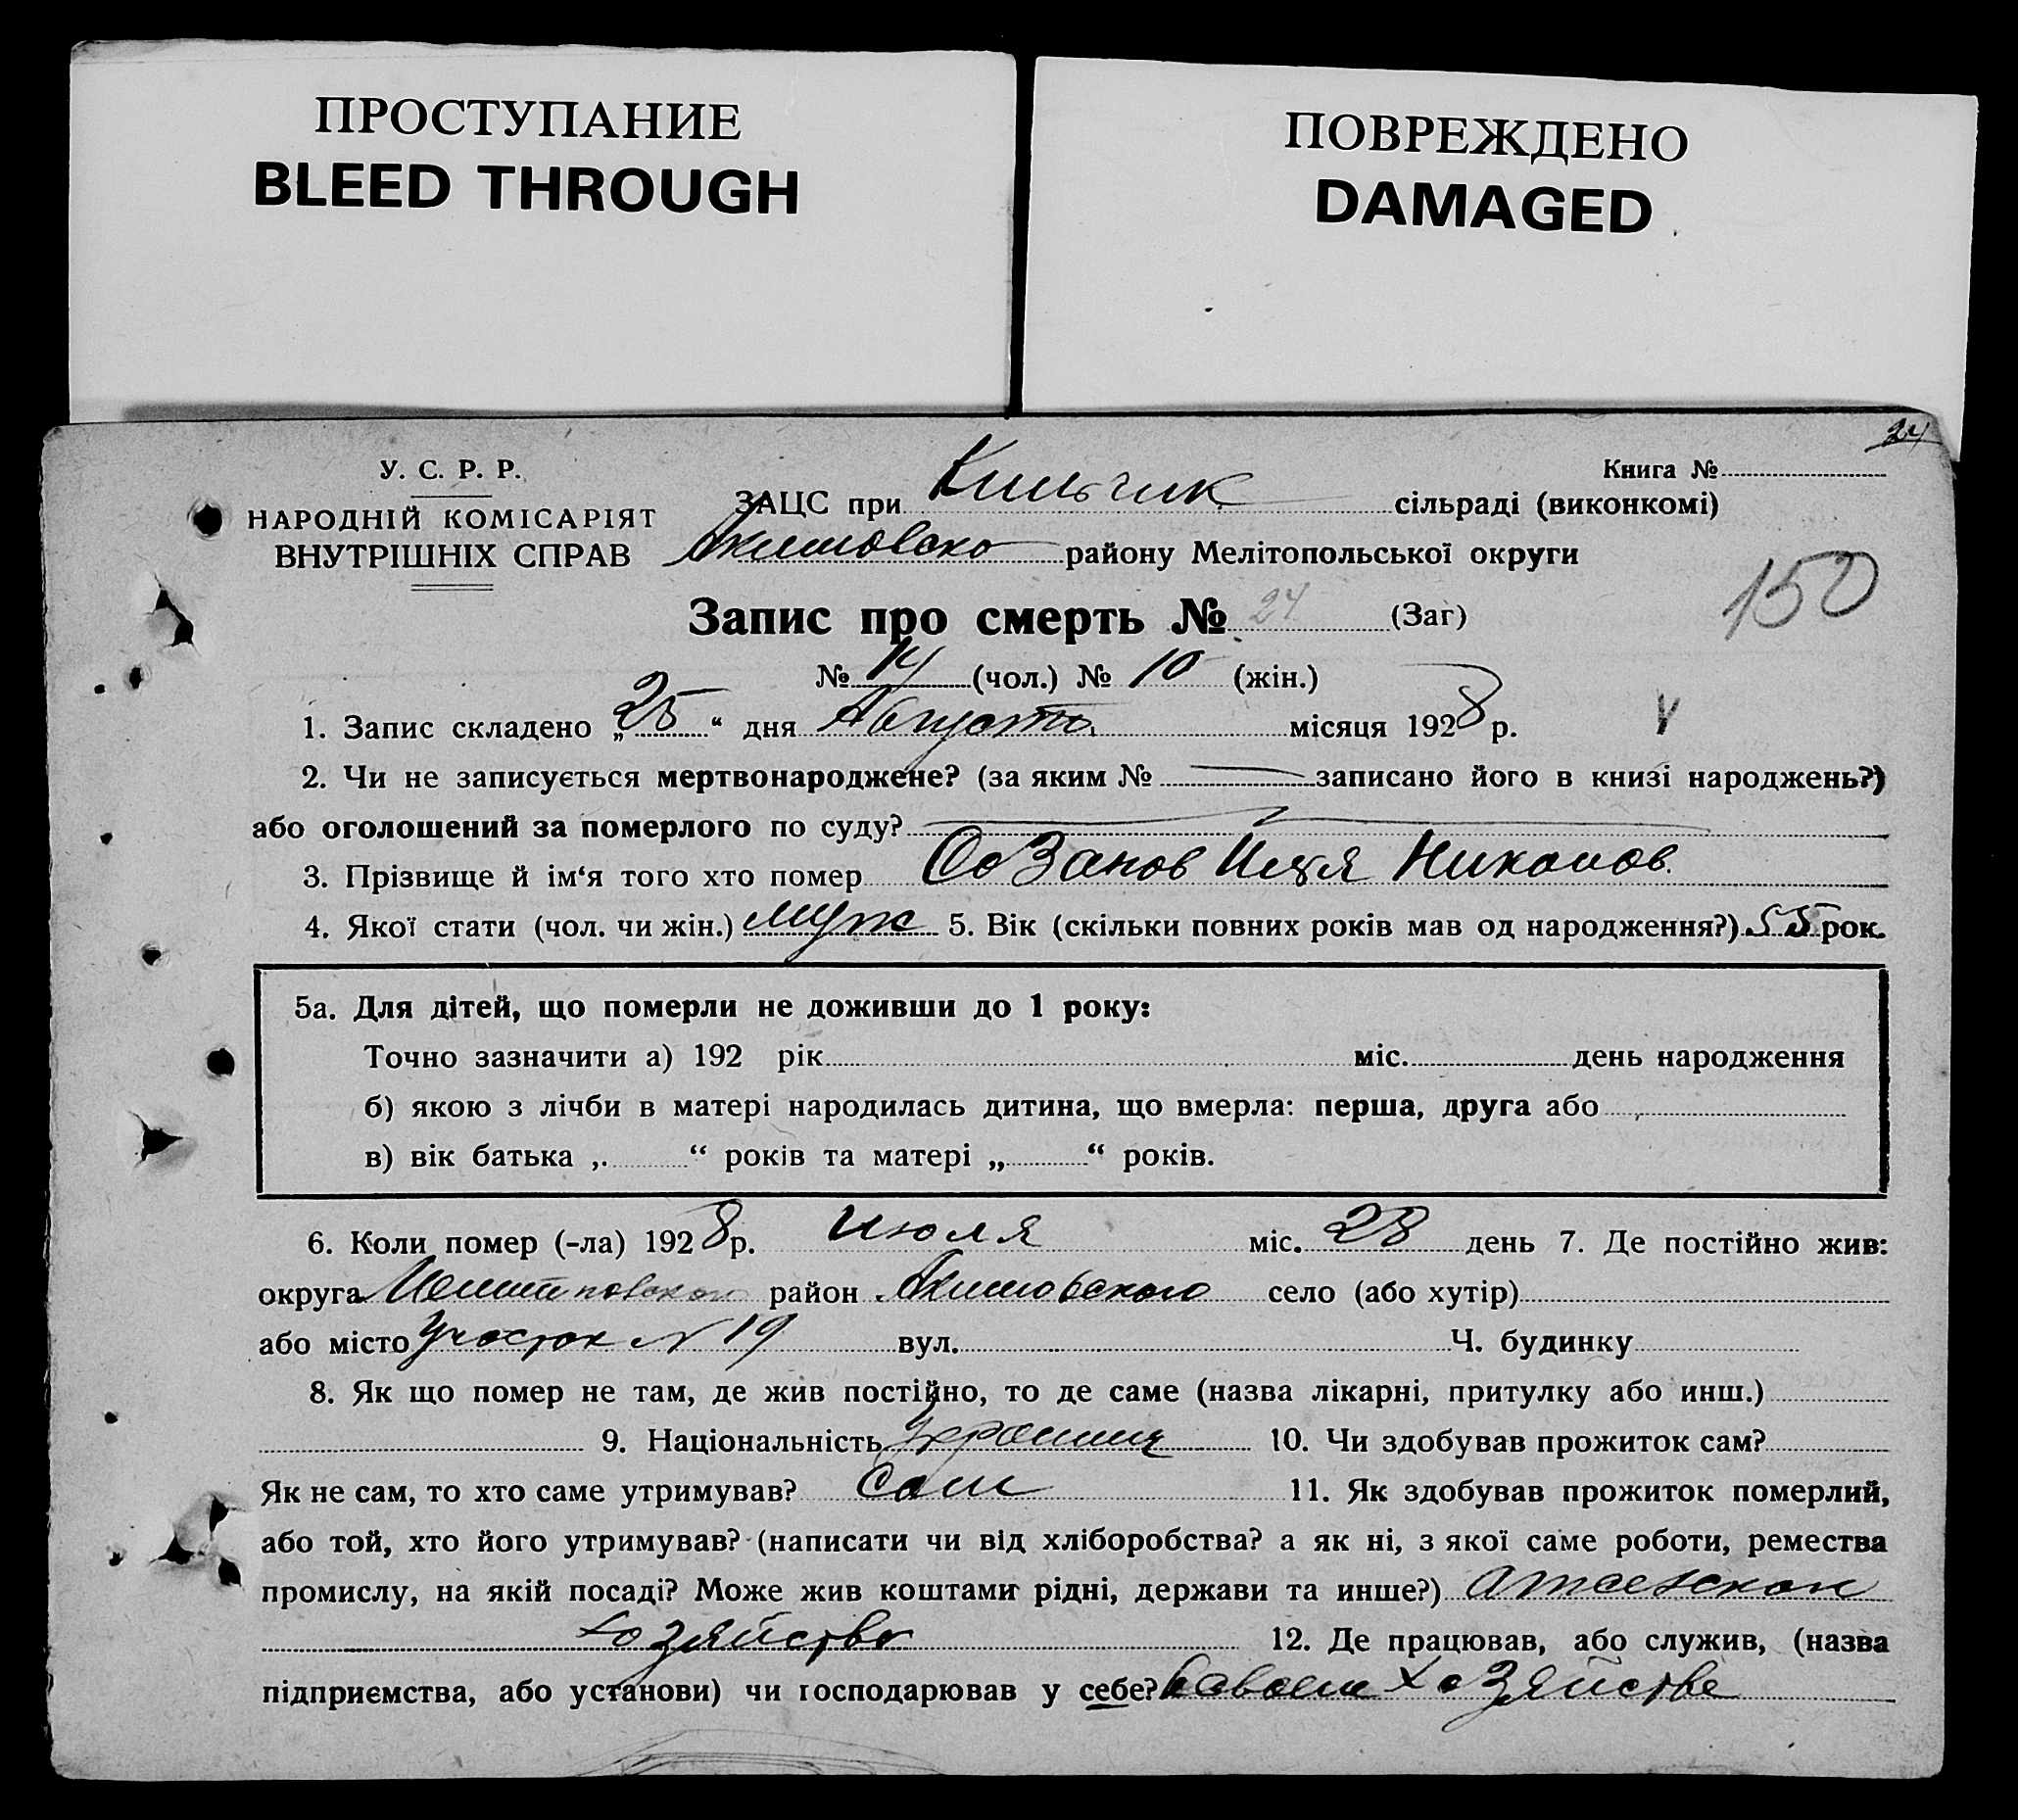 ПРОСТУПАНИЕ
BLEED THROUGH
ПОВРЕЖДЕНО
DAMAGED
24
У. С. Р. Р.
НАРОДНІЙ КОМІСАРІЯТ
ВНУТРІШНІХ СПРАВ
Книга №
ЗАЦС при Кильчик сільраді (виконкомі)
Акимовско району Мелітопольської округи
150
Запис про смерть № 24 (Заг)
№ 14 (чол.) № 10 (жін.)
1. Запис складено „25“ дня Августа місяця 1928 р.
2. Чи не записується мертвонароджене? (за яким № записано його в книзі народжень?)
або оголошений за померлого по суду?
3. Прізвище й ім‘я того хто помер
4. Якої стати (чол. чи жін.) муж 5. Вік (скільки повних років мав од народження?) 55 рок.
5а. Для дітей, що померли не доживши до 1 року:
Точно зазначити а) 192 рік міс. день народження
б) якою з лічби в матері народилась дитина, що вмерла: перша, друга або
в) вік батька „ “ років та матері „ “ років.
6. Коли помер (-ла) 1928 р. Июля міс. 28 день 7. Де постійно жив:
округа район Акимовского село (або хутір)
або місто Участок N 19 вул. Ч. будинку
8. Як що помер не там, де жив постійно, то де саме (назва лікарні, притулку або инш.)
9. Національність 10. Чи здобував прожиток сам?
Як не сам, то хто саме утримував? Сам 11. Як здобував прожиток померлий,
або той, хто його утримував? (написати чи від хліборобства? а як ні, з якої саме роботи, ремества
промислу, на якій посаді? Може жив коштами рідні, держави та инше?)
хозяйство 12. Де працював, або служив, (назва
підприємства, або установи) чи господарював у себе? хозяйстве